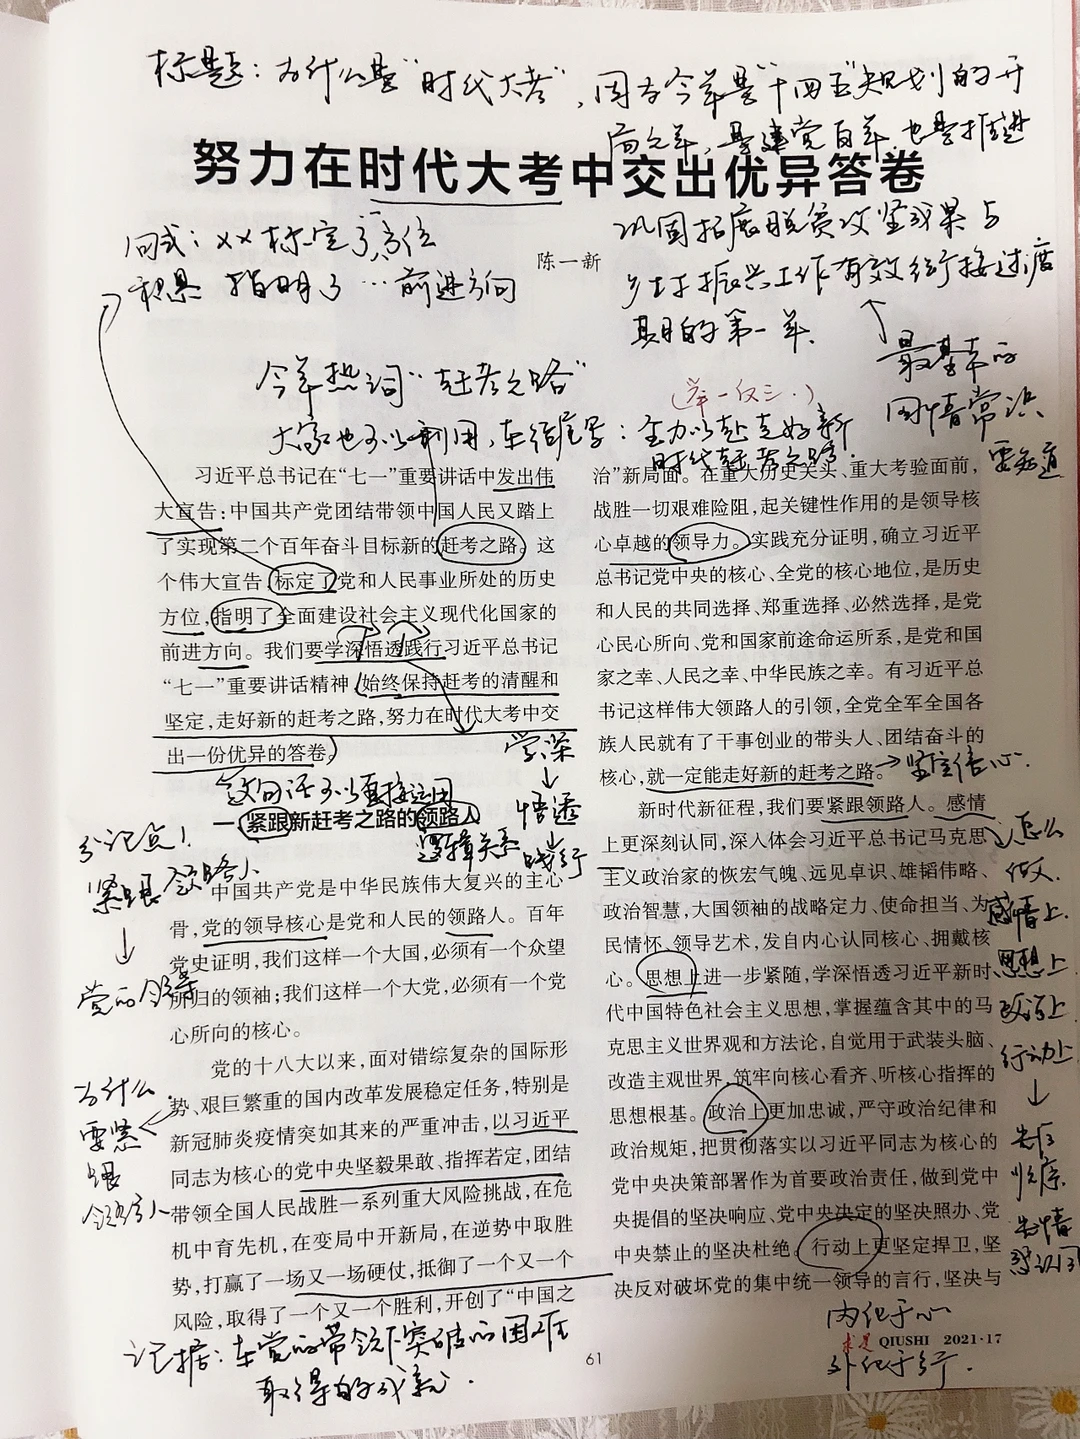 标题：为什么是“时代大考”，因为今年是“十四五”规划的开
局之年，是建党百年，也是推进
努力在时代大考中交出优异答卷
巩固拓展脱贫攻坚成果与
乡村振兴工作有效衔接过渡
期的第一年.
最基本的
国情常识
要知道
句式：××标定了方位
积累 指明了…前进方向
陈一新
今年热词“赶考之路”
(举一反三.)
大家也可以利用，在结尾写：全力以赴走好新
时代赶考之路.
习近平总书记在“七一”重要讲话中发出伟
大宣告：中国共产党团结带领中国人民又踏上
了实现第二个百年奋斗目标新的赶考之路。这
个伟大宣告，标定了党和人民事业所处的历史
方位，指明了全面建设社会主义现代化国家的
前进方向。我们要学深悟透践行习近平总书记
“七一”重要讲话精神，始终保持赶考的清醒和
坚定，走好新的赶考之路，努力在时代大考中交
出一份优异的答卷。
这句话可以直接运用
学深
↓
悟透
↓
践行
逻辑关系
一、紧跟新赶考之路的领路人
分论点！
紧跟领路人
↓
党的领导
中国共产党是中华民族伟大复兴的主心
骨，党的领导核心是党和人民的领路人。百年
党史证明，我们这样一个大国，必须有一个众望
所归的领袖；我们这样一个大党，必须有一个党
心所向的核心。
为什么
要紧
跟
领路人
党的十八大以来，面对错综复杂的国际形
势、艰巨繁重的国内改革发展稳定任务，特别是
新冠肺炎疫情突如其来的严重冲击，以习近平
同志为核心的党中央坚毅果敢、指挥若定，团结
带领全国人民战胜一系列重大风险挑战，在危
机中育先机，在变局中开新局，在逆势中取胜
势，打赢了一场又一场硬仗，抵御了一个又一个
风险，取得了一个又一个胜利，开创了“中国之
论据：在党的带领下突破的困难
取得的成就.
治”新局面。在重大历史关头、重大考验面前，
战胜一切艰难险阻，起关键性作用的是领导核
心卓越的领导力。实践充分证明，确立习近平
总书记党中央的核心、全党的核心地位，是历史
和人民的共同选择、郑重选择、必然选择，是党
心民心所向、党和国家前途命运所系，是党和国
家之幸、人民之幸、中华民族之幸。有习近平总
书记这样伟大领路人的引领，全党全军全国各
族人民就有了干事创业的带头人、团结奋斗的
核心，就一定能走好新的赶考之路。
→坚定信心.
新时代新征程，我们要紧跟领路人。感情
上更深刻认同，深入体会习近平总书记马克思
主义政治家的恢宏气魄、远见卓识、雄韬伟略、
政治智慧，大国领袖的战略定力、使命担当、为
民情怀、领导艺术，发自内心认同核心、拥戴核
心。思想上进一步紧随，学深悟透习近平新时
代中国特色社会主义思想，掌握蕴含其中的马
克思主义世界观和方法论，自觉用于武装头脑、
改造主观世界，筑牢向核心看齐、听核心指挥的
思想根基。政治上更加忠诚，严守政治纪律和
政治规矩，把贯彻落实以习近平同志为核心的
党中央决策部署作为首要政治责任，做到党中
央提倡的坚决响应、党中央决定的坚决照办、党
中央禁止的坚决杜绝。行动上更坚定捍卫，坚
决反对破坏党的集中统一领导的言行，坚决与
怎么
做
感情上
思想上
政治上
行动上
↓
先后
顺序
先情
感认同
内化于心
求是 QIUSHI 2021·17
外化于行.
61